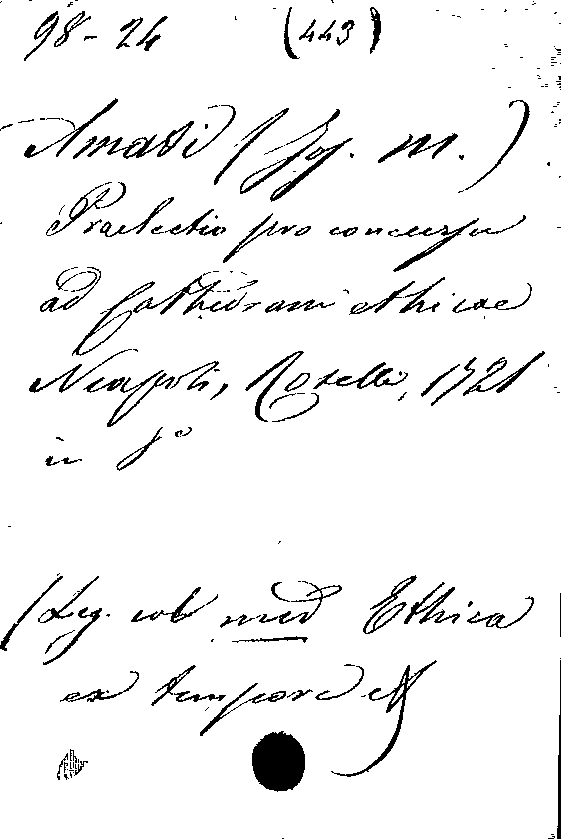 98-24 (443)
Amati (Jos. M.)
Praelectio pro concursu
ad Cathedram ethicae
Neapoli, Roselli, 1721
in 8°
(Leg. col med Ethica
ex tempore et